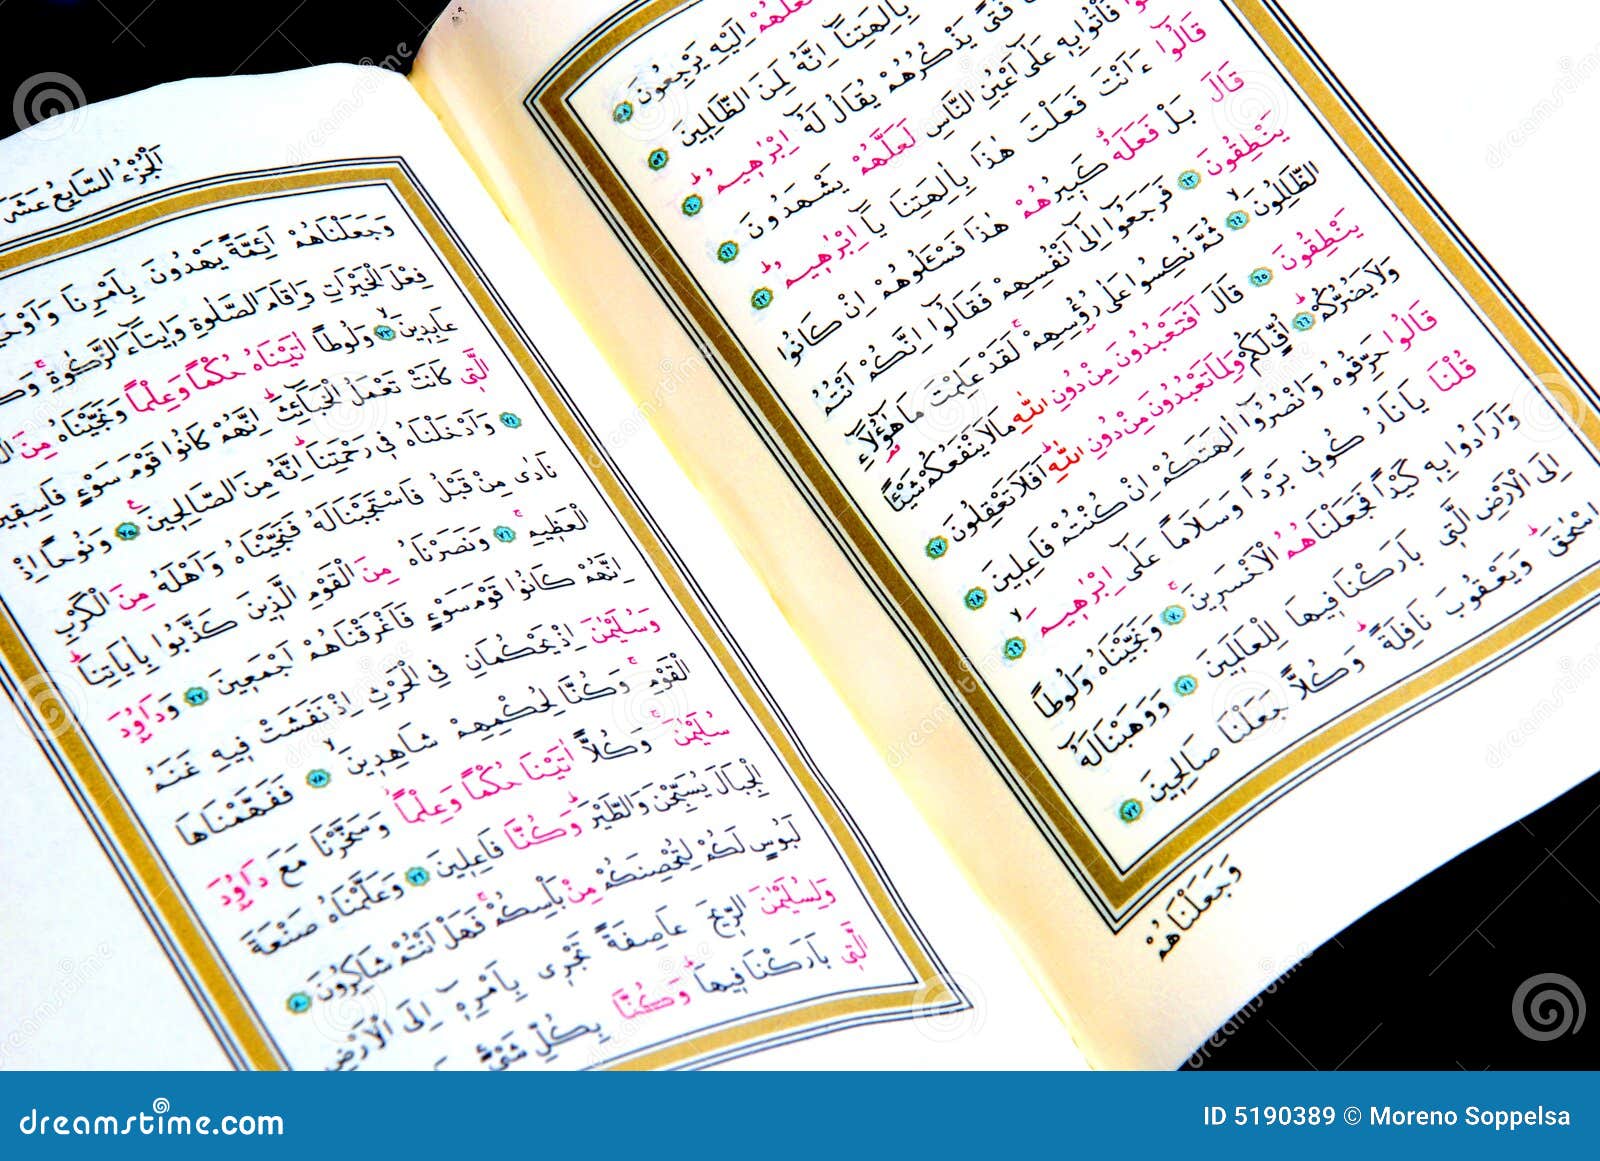 لَعَلَّهُمْ اِلَيْهِ يَرْجِعُونَ ٥٨
بِاٰلِهَتِنَٓا اِنَّهُ لَمِنَ الظَّالِمٖينَ ٥٩
فَتًى يَذْكُرُهُمْ يُقَالُ لَهُٓ اِبْرٰهٖيمُ ٦٠
فَأْتُوا بِهٖ عَلٰٓى اَعْيُنِ النَّاسِ لَعَلَّهُمْ يَشْهَدُونَ ٦١
قَالُٓوا ءَاَنْتَ فَعَلْتَ هٰذَا بِاٰلِهَتِنَا يَٓا اِبْرٰهٖيمُ ٦٢
قَالَ بَلْ فَعَلَهُ كَبٖيرُهُمْ هٰذَا فَسْـَٔلُوهُمْ اِنْ كَانُوا
يَنْطِقُونَ ٦٣ فَرَجَعُٓوا اِلٰٓى اَنْفُسِهِمْ فَقَالُٓوا اِنَّكُمْ اَنْتُمُ
الظَّالِمُونَ ٦٤ ثُمَّ نُكِسُوا عَلٰى رُؤُ۫سِهِمْ لَقَدْ عَلِمْتَ مَا هٰٓؤُ۬لَٓاءِ
يَنْطِقُونَ ٦٥ قَالَ اَفَتَعْبُدُونَ مِنْ دُونِ اللّٰهِ مَا لَا يَنْفَعُكُمْ شَيْـًٔا
وَلَا يَضُرُّكُمْ ٦٦ اُفٍّ لَكُمْ وَلِمَا تَعْبُدُونَ مِنْ دُونِ اللّٰهِ اَفَلَا تَعْقِلُونَ ٦٧
قَالُوا حَرِّقُوهُ وَانْصُرُٓوا اٰلِهَتَكُمْ اِنْ كُنْتُمْ فَاعِلٖينَ ٦٨
قُلْنَا يَا نَارُ كُونٖي بَرْدًا وَسَلَامًا عَلٰٓى اِبْرٰهٖيمَ ٦٩
وَاَرَادُوا بِهٖ كَيْدًا فَجَعَلْنَاهُمُ الْاَخْسَرٖينَ ٧٠ وَنَجَّيْنَاهُ وَلُوطًا
اِلَى الْاَرْضِ الَّتٖي بَارَكْنَا فٖيهَا لِلْعَالَمٖينَ ٧١ وَوَهَبْنَا لَهُٓ
اِسْحٰقَ وَيَعْقُوبَ نَافِلَةً وَكُلًّا جَعَلْنَا صَالِحٖينَ ٧٢
وَجَعَلْنَاهُمْ
اَلْجُزْءُ السَّابِعُ عَشَرَ
وَجَعَلْنَاهُمْ اَئِمَّةً يَهْدُونَ بِاَمْرِنَا
فِعْلَ الْخَيْرَاتِ وَاِقَامَ الصَّلٰوةِ وَاٖيتَٓاءَ الزَّكٰوةِ
عَابِدٖينَ ٧٣ وَلُوطًا اٰتَيْنَاهُ حُكْمًا وَعِلْمًا وَنَجَّيْنَاهُ مِنَ
الَّتٖي كَانَتْ تَعْمَلُ الْخَبَٓائِثَ اِنَّهُمْ كَانُوا قَوْمَ سَوْءٍ فَاسِقٖينَ
٧٤ وَاَدْخَلْنَاهُ فٖي رَحْمَتِنَا اِنَّهُ مِنَ الصَّالِحٖينَ ٧٥ وَنُوحًا اِذْ
نَادٰى مِنْ قَبْلُ فَاسْتَجَبْنَا لَهُ فَنَجَّيْنَاهُ وَاَهْلَهُ مِنَ الْكَرْبِ
الْعَظٖيمِ ٧٦ وَنَصَرْنَاهُ مِنَ الْقَوْمِ الَّذٖينَ كَذَّبُوا بِاٰيَاتِنَا
اِنَّهُمْ كَانُوا قَوْمَ سَوْءٍ فَاَغْرَقْنَاهُمْ اَجْمَعٖينَ ٧٧ وَدَاوُ۫دَ
وَسُلَيْمٰنَ اِذْ يَحْكُمَانِ فِي الْحَرْثِ اِذْ نَفَشَتْ فٖيهِ غَنَمُ
الْقَوْمِ وَكُنَّا لِحُكْمِهِمْ شَاهِدٖينَ ٧٨ فَفَهَّمْنَاهَا
سُلَيْمٰنَ وَكُلًّا اٰتَيْنَا حُكْمًا وَعِلْمًا وَسَخَّرْنَا مَعَ دَاوُ۫دَ
الْجِبَالَ يُسَبِّحْنَ وَالطَّيْرَ وَكُنَّا فَاعِلٖينَ ٧٩ وَعَلَّمْنَاهُ صَنْعَةَ
لَبُوسٍ لَكُمْ لِتُحْصِنَكُمْ مِنْ بَأْسِكُمْ فَهَلْ اَنْتُمْ شَاكِرُونَ ٨٠
وَلِسُلَيْمٰنَ الرّٖيحَ عَاصِفَةً تَجْرٖي بِاَمْرِهٖٓ اِلَى الْاَرْضِ
الَّتٖي بَارَكْنَا فٖيهَا وَكُنَّا بِكُلِّ شَيْءٍ
dreamstime.com
ID 5190389 © Moreno Soppelsa